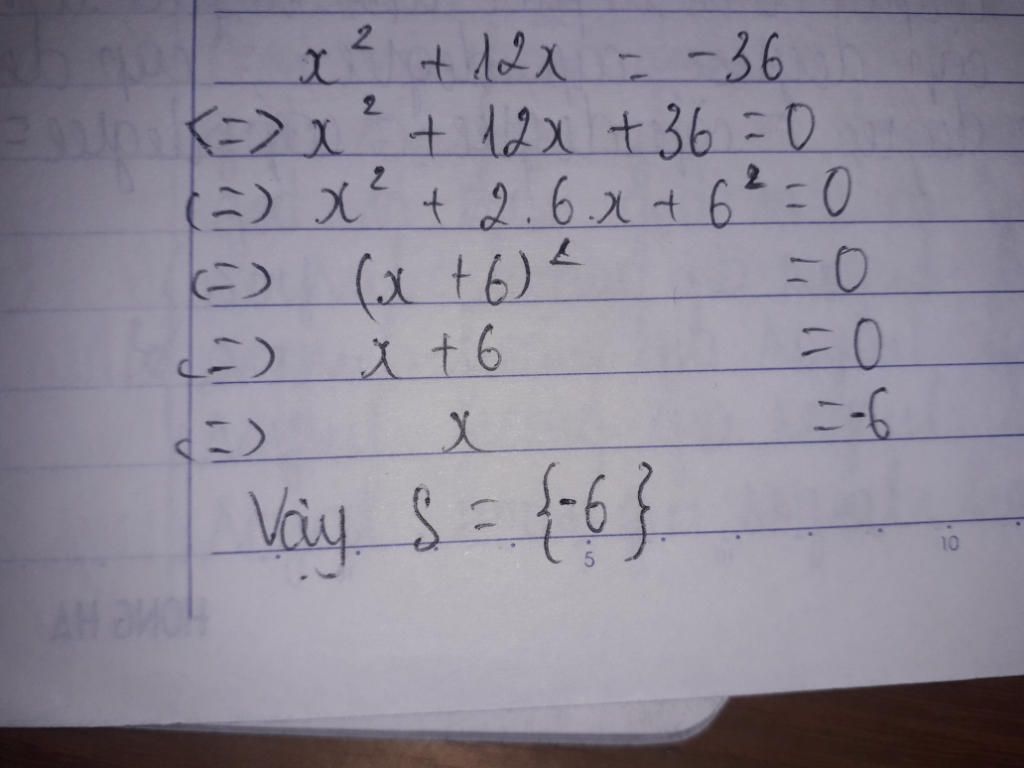 x² + 12x = -36
<=> x² + 12x + 36 = 0
<=> x² + 2.6.x + 6² = 0
<=> (x + 6)² = 0
<=> x + 6 = 0
<=> x = -6
Vậy S = {-6}
5 10
HONG HA